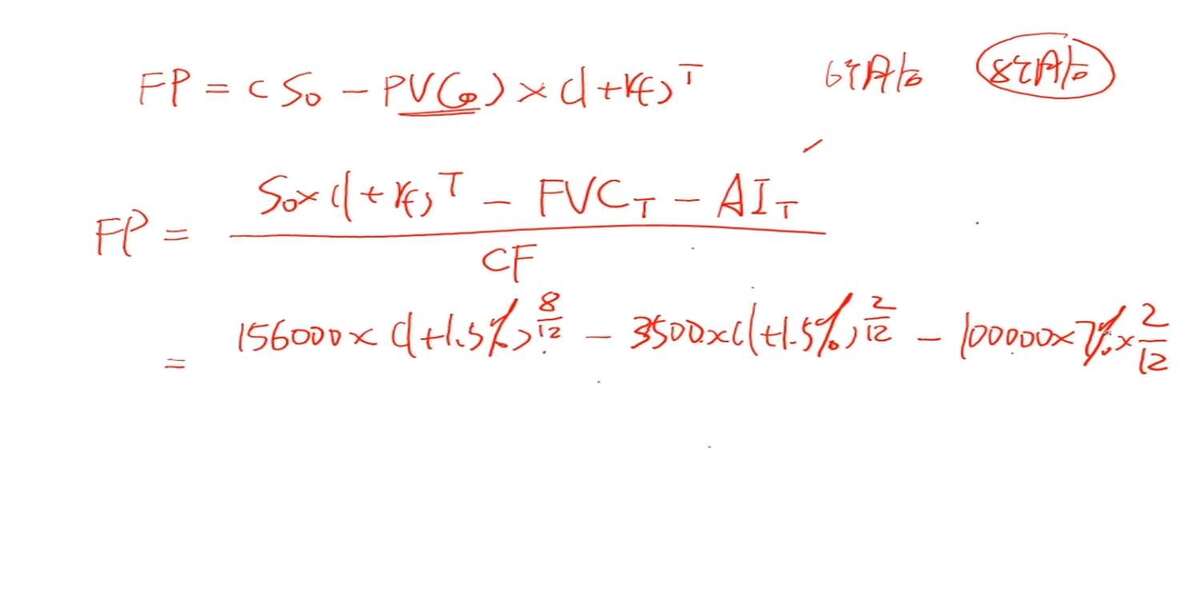 FP = (S₀ - PVC₀) × (1+rf)^T 6个月后 8个月后
FP = (S₀×(1+rf)^T - FVC_T - AI_T) / CF
= 156000×(1+1.5%)^(8/12) - 3500×(1+1.5%)^(2/12) - 100000×7%×2/12